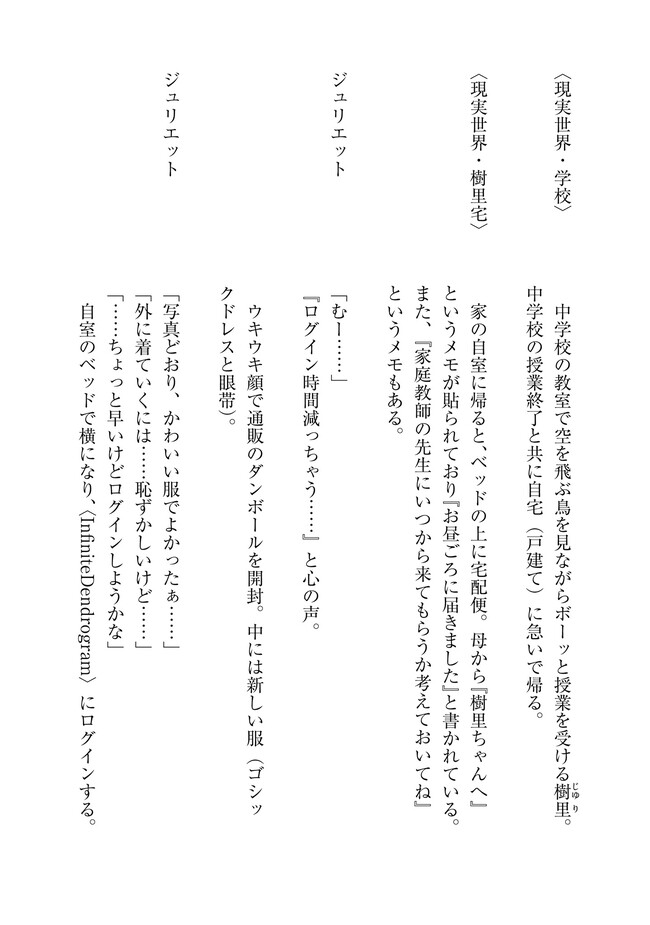 〈現実世界・学校〉
中学校の教室で空を飛ぶ鳥を見ながらボーッと授業を受ける樹里。
じゅり
中学校の授業終了と共に自宅（戸建て）に急いで帰る。
〈現実世界・樹里宅〉
家の自室に帰ると、ベッドの上に宅配便。母から『樹里ちゃんへ』
というメモが貼られており『お昼ごろに届きました』と書かれている。
また、『家庭教師の先生にいつから来てもらうか考えておいてね』
というメモもある。
ジュリエット
「むー……」
『ログイン時間減っちゃう……』と心の声。
ウキウキ顔で通販のダンボールを開封。中には新しい服（ゴシッ
クドレスと眼帯）。
ジュリエット
「写真どおり、かわいい服でよかったぁ……」
「外に着ていくには……恥ずかしいけど……」
「……ちょっと早いけどログインしようかな」
自室のベッドで横になり、〈InfiniteDendrogram〉にログインする。